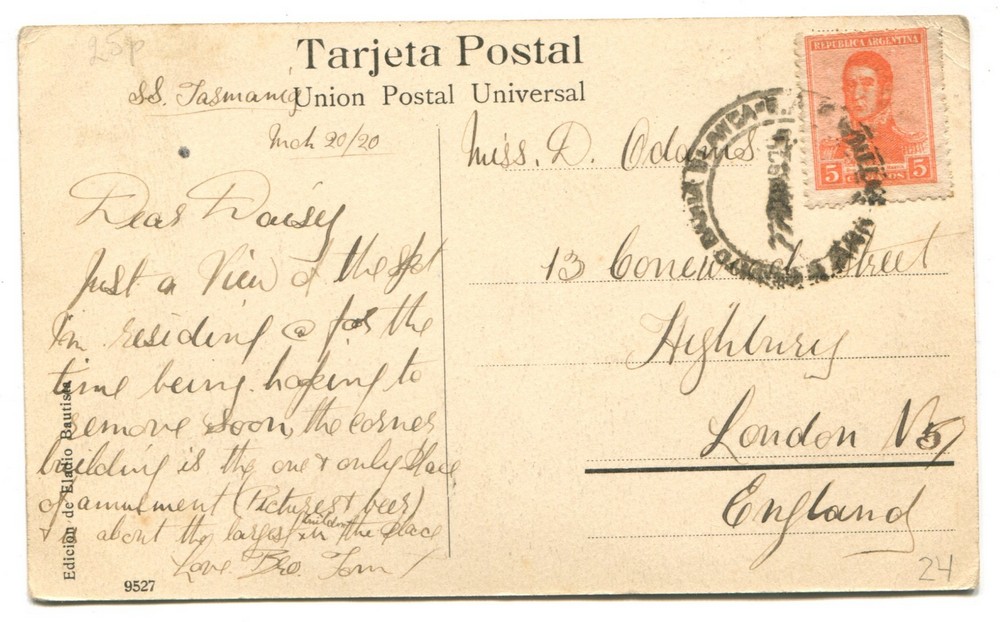 25p
Tarjeta Postal
Union Postal Universal
SS. Tasmania
Mch 20/20
Dear Daisy
Just a View of the spot
I'm residing @ for the
time being. hoping to
remove soon, the corner
building is the one & only place
of amusement (Pictures & beer)
& about the largest building in the place
Love Bro. Tom
Miss. D. Odams
13 Conewock Street
Highbury
London N5
England
REPUBLICA ARGENTINA
5 CENTAVOS 5
Edición de Eladio Bautista
9527
24